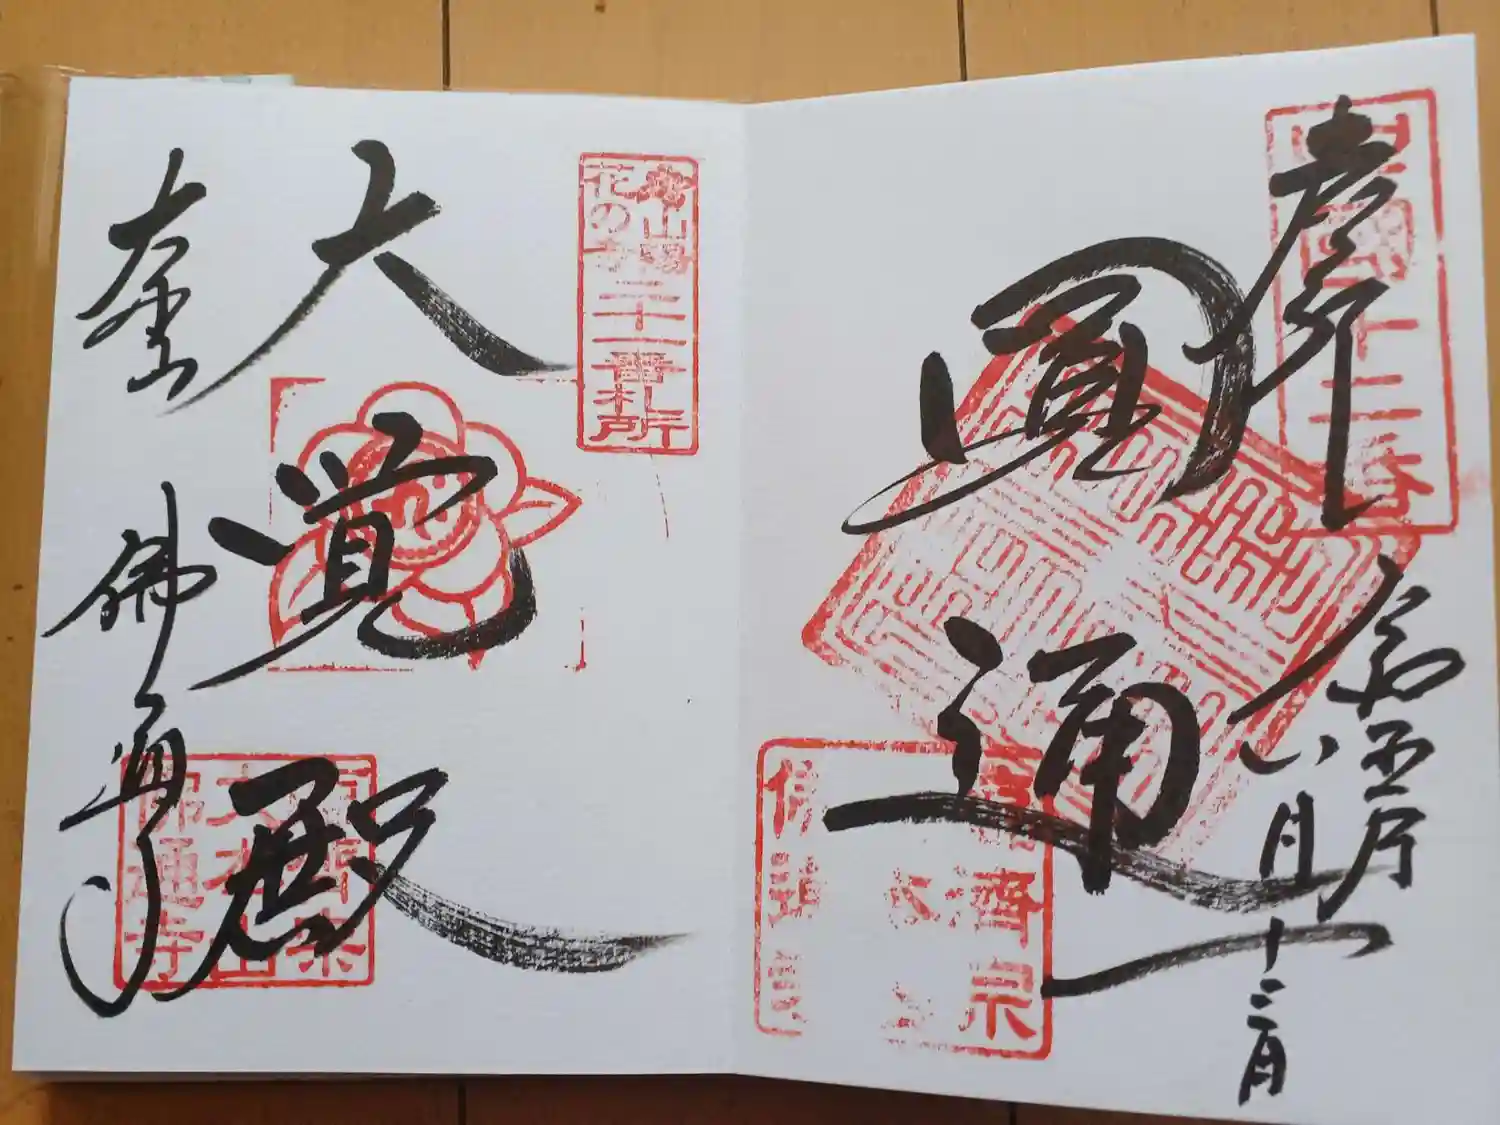 奉拝
中國十二番
圓通
令和五年
六月十三日
臨濟宗
山陽
花の寺
二十一番札所
大覚殿
大本山
佛通寺
臨濟宗
大本山
佛通寺